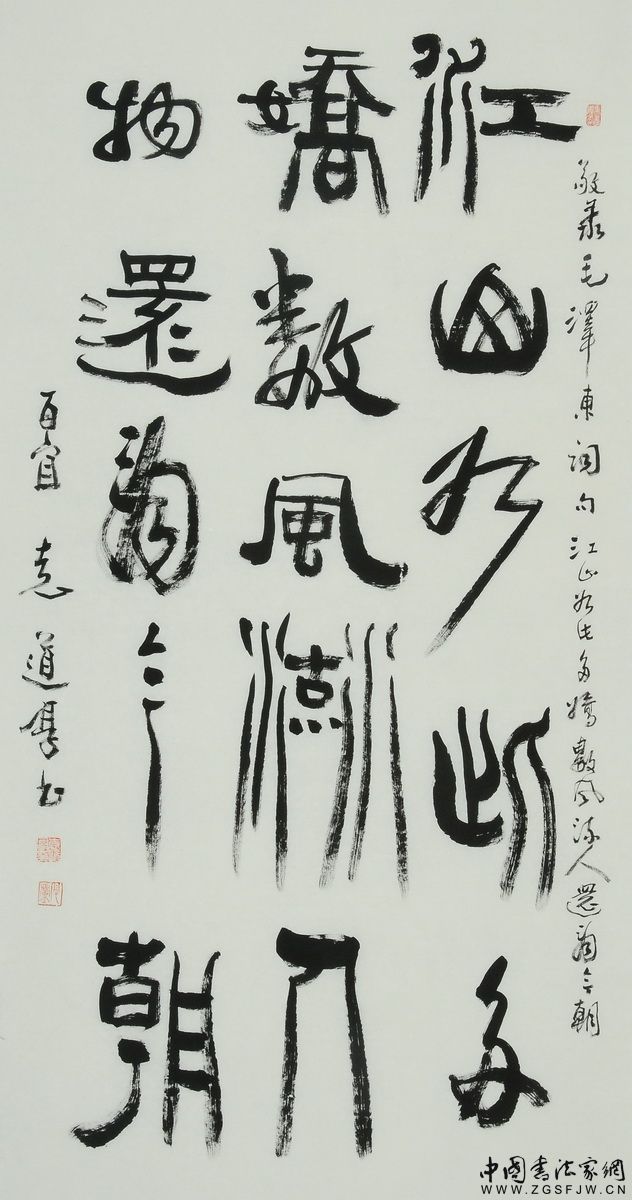 敬录毛澤東詞句江山如此多嬌數風流人還看今朝
江山如此多
嬌數風流人
物還看今朝
百宜 袁道厚书
中國书法家網
WWW.ZGSFJW.CN